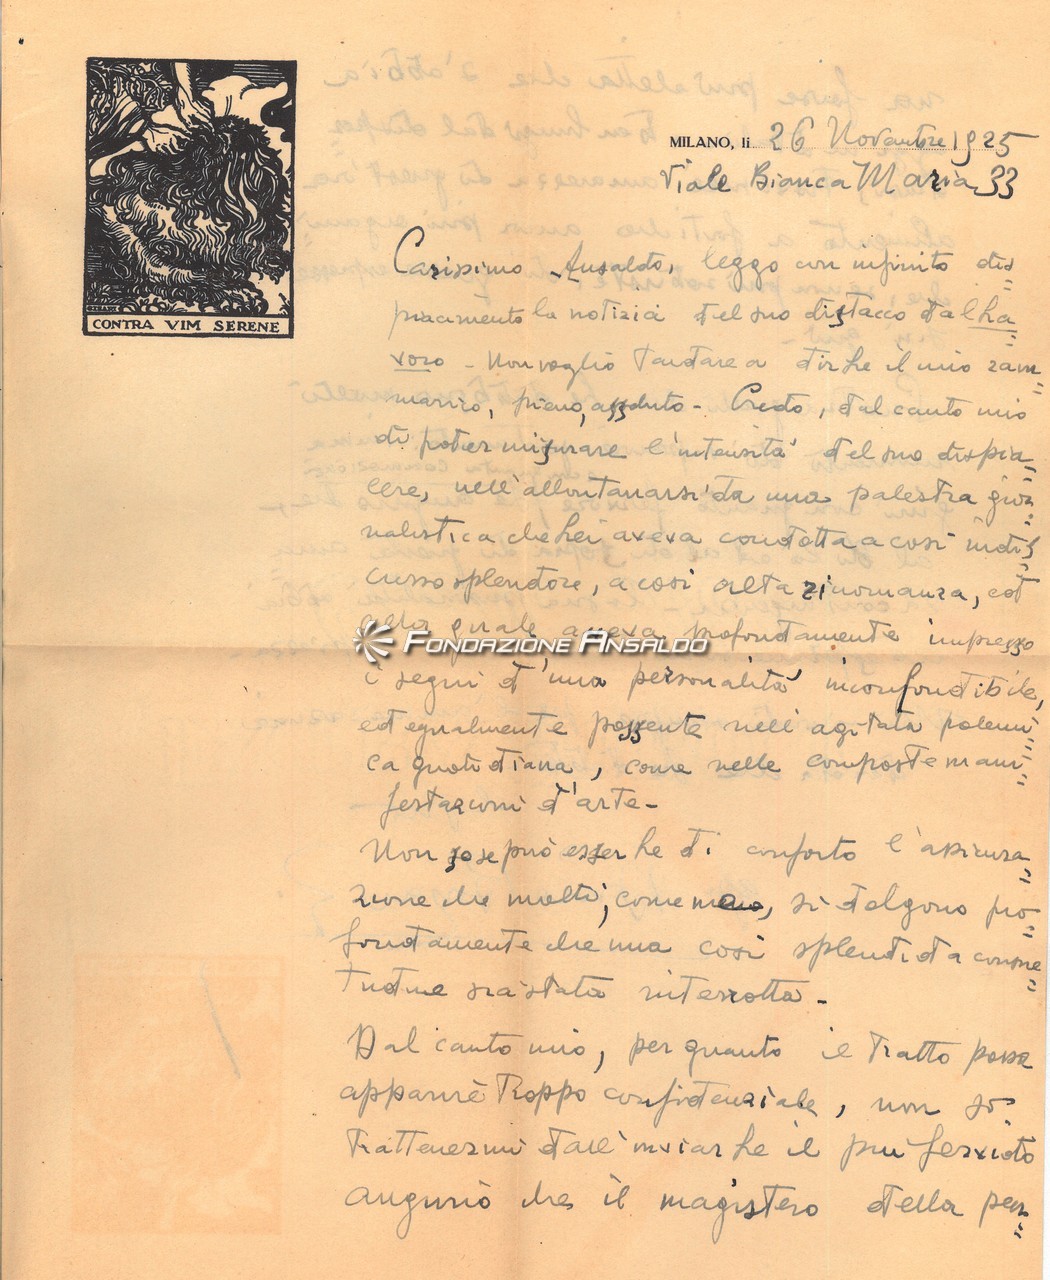 CONTRA VIM SERENE
MILANO, li 26 Novembre 1925
Viale Bianca Maria 33
Carissimo Ansaldo, leggo con infinito dis=
piacimento la notizia del suo distacco dal La
voro - Non voglio tardare a dirLe il mio ram=
marico, pieno, assoluto - Credo, dal canto mio
di poter misurare l'intensità del suo dispia=
cere, nell'allontanarsi da una palestra gior=
nalistica che Lei aveva condotta a così indis=
cusso splendore, a così alta rinomanza, ed
alla quale aveva profondamente impresso
FONDAZIONE ANSALDO
i segni d'una personalità inconfondibile,
ed egualmente possente nell'agitata polemi=
ca quotidiana, come nelle composte mani=
festazioni d'arte -
Non so se può esserLe di conforto l'assicura=
zione che molti, come me, si dolgono pro=
fondamente che una così splendida consue=
tudine sia stata interrotta -
Dal canto mio, per quanto il tratto possa
apparire troppo confidenziale, non so
trattenermi dall'inviarLe il più fervido
augurio che il magistero della pen=